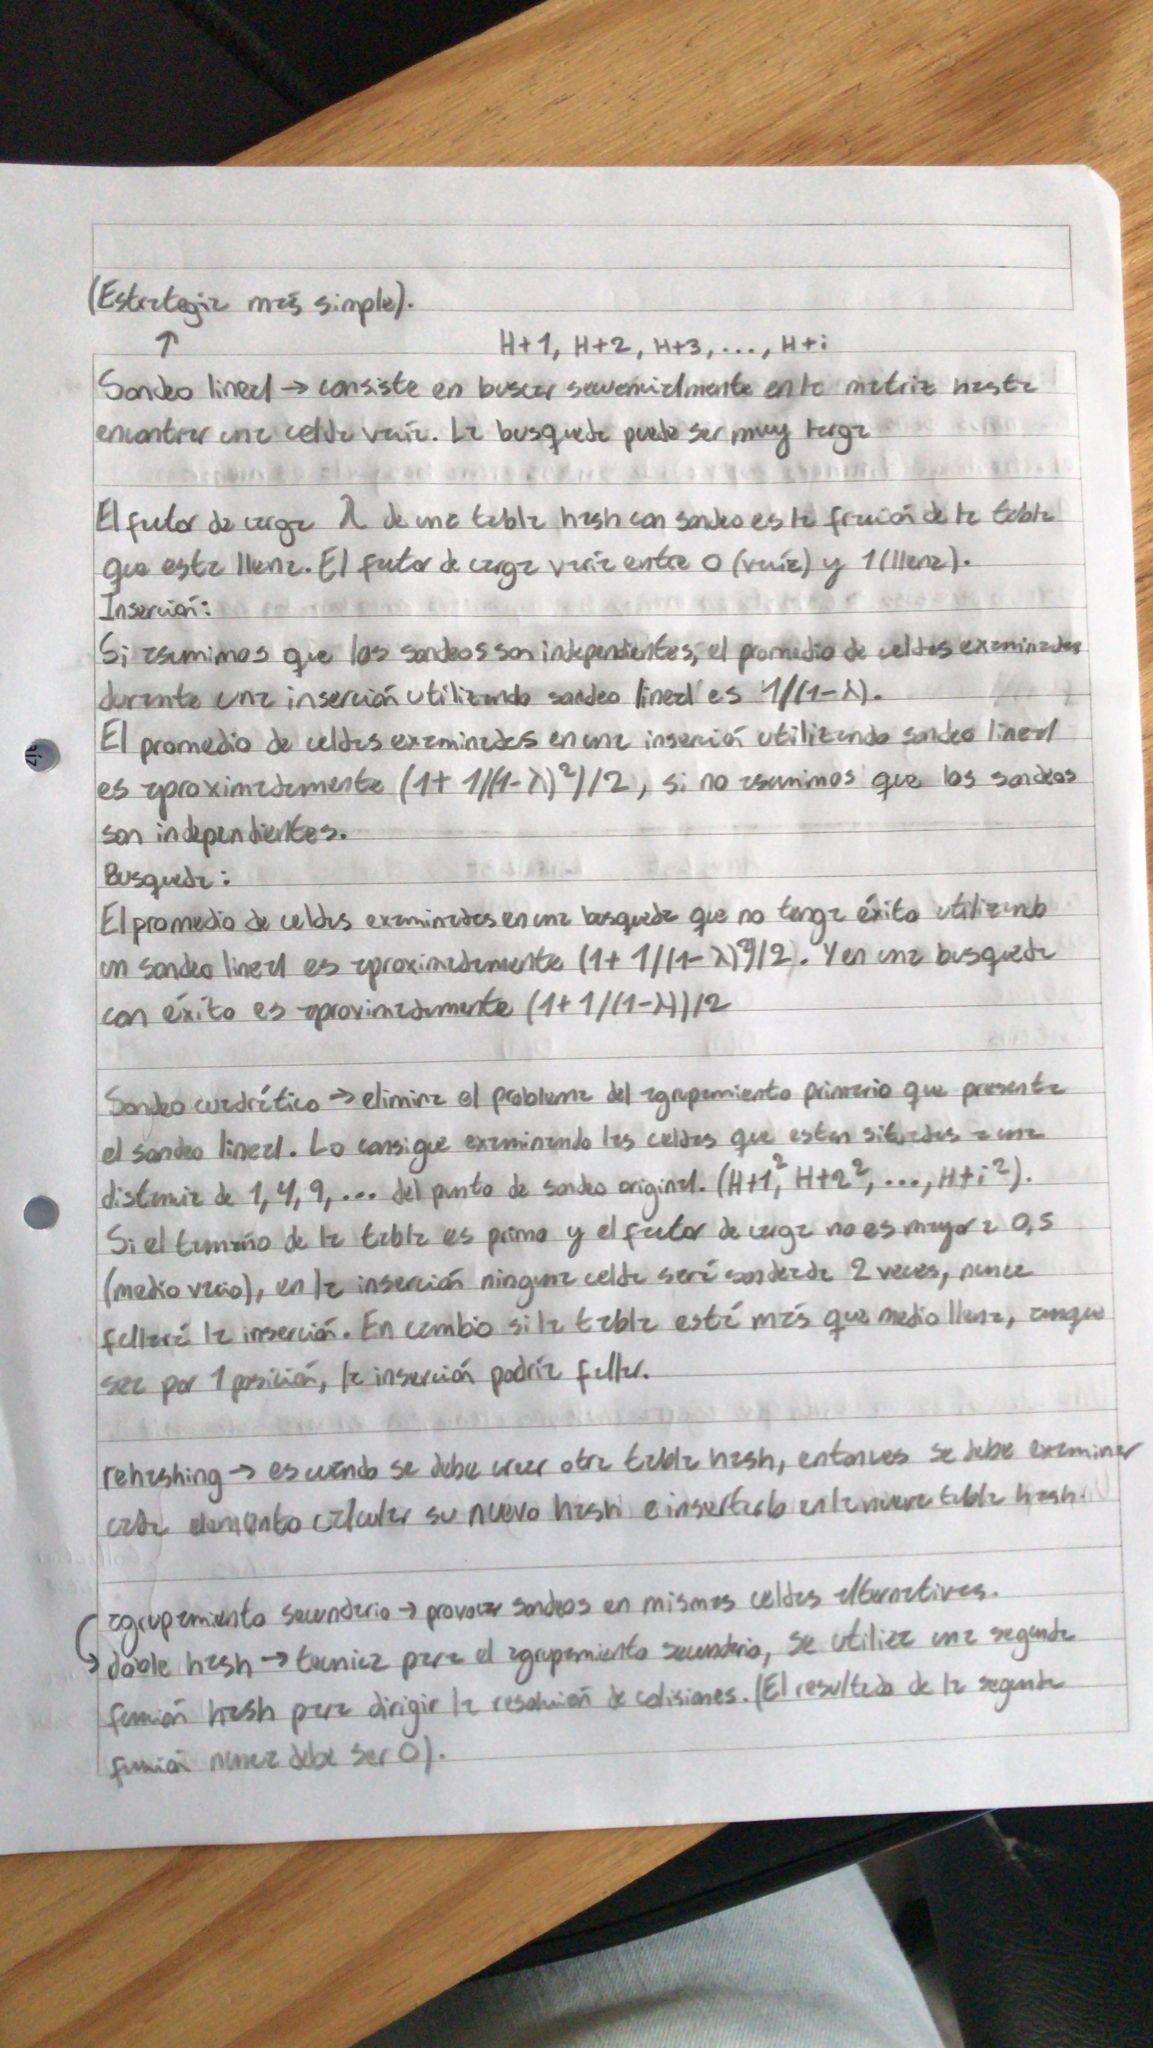 (Estrategia más simple).
↑
H+1, H+2, H+3, ..., H+i
Sondeo lineal → consiste en buscar secuencialmente en la matriz hasta
encontrar una celda vacía. La busqueda puede ser muy larga
El factor de carga λ de una tabla hash con sondeo es la fracción de la tabla
que esta llena. El factor de carga varia entre 0 (vacía) y 1 (llena).
Inserción:
Si asumimos que los sondeos son independientes, el promedio de celdas examinadas
durante una inserción utilizando sondeo lineal es 1/(1-λ).
El promedio de celdas examinadas en una inserción utilizando sondeo lineal
es aproximadamente (1+ 1/(1-λ)²)/2, si no asumimos que los sondeos
son independientes.
Busqueda:
El promedio de celdas examinadas en una busqueda que no tenga éxito utilizando
un sondeo lineal es aproximadamente (1+ 1/(1-λ)²)/2. Y en una busqueda
con éxito es aproximadamente (1+1/(1-λ))/2
Sondeo cuadrático → elimina el problema del agrupamiento primario que presenta
el sondeo lineal. Lo consigue examinando las celdas que estan situadas a una
distancia de 1, 4, 9, ... del punto de sondeo original. (H+1², H+2², ..., H+i²).
Si el tamaño de la tabla es primo y el factor de carga no es mayor a 0,5
(medio vacio), en la inserción ninguna celda será sondeada 2 veces, nunca
fallará la inserción. En cambio si la tabla está más que medio llena, aunque
sea por 1 posición, la inserción podría fallar.
rehashing → es cuando se debe crear otra tabla hash, entonces se debe examinar
cada elemento calcular su nuevo hash e insertarlo en la nueva tabla hash.
agrupamiento secundario → provocar sondeos en mismas celdas alternativas.
doble hash → tecnica para el agrupamiento secundario, se utiliza una segunda
función hash para dirigir la resolución de colisiones. (El resultado de la segunda
función nunca debe ser 0).